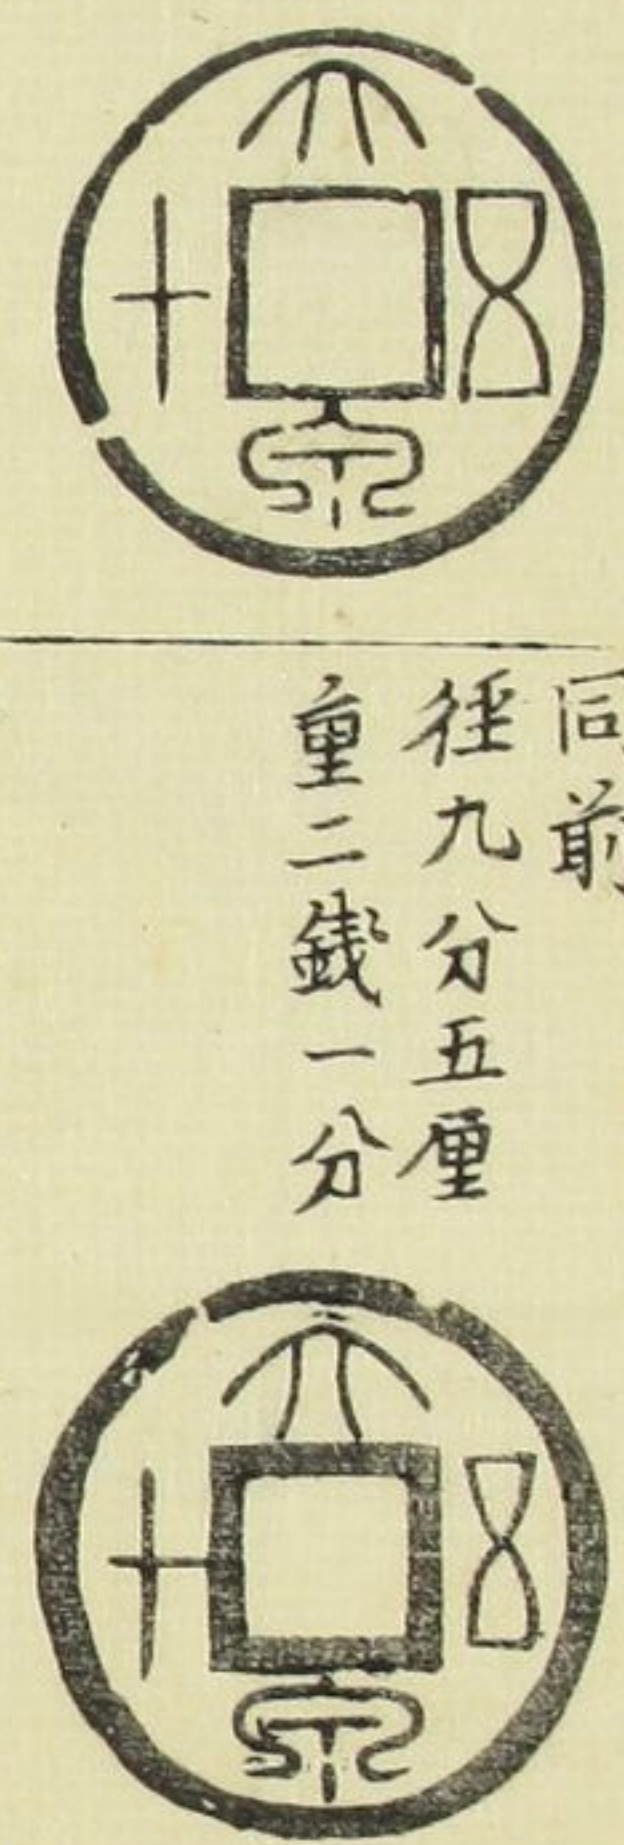 大泉五十
同前
徑九分五厘
重二錢一分
大泉五十